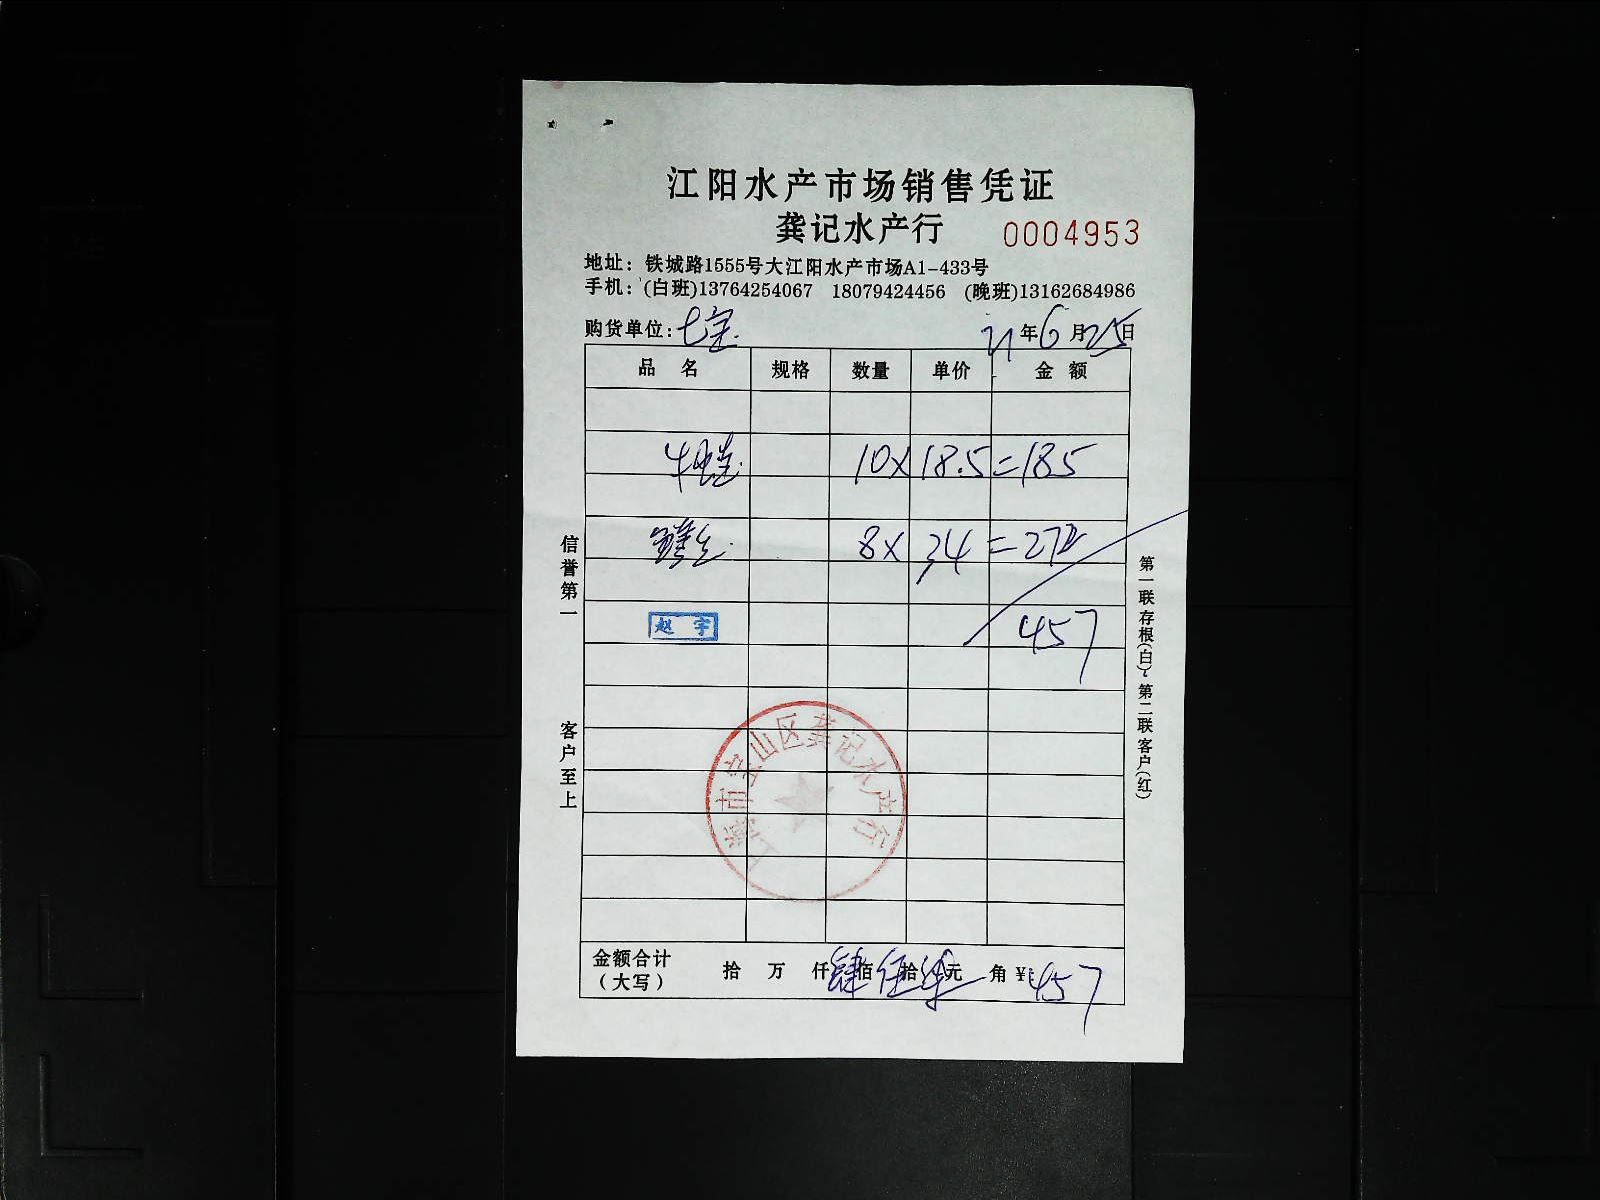 江阳水产市场销售凭证
龚记水产行 0004953
地址：铁城路1555号大江阳水产市场A1-433号
手机：(白班)13764254067 18079424456 (晚班)13162684986
购货单位：七宝 21年6月25日
品名 规格 数量 单价 金额
牛蛙 10×18.5=185
8×34=272
赵宇
457
上海市宝山区龚记水产行
金额合计（大写） 拾 万 仟肆佰伍拾柒元 角 ¥:457
信誉第一 客户至上
第一联存根(白) 第二联客户(红)